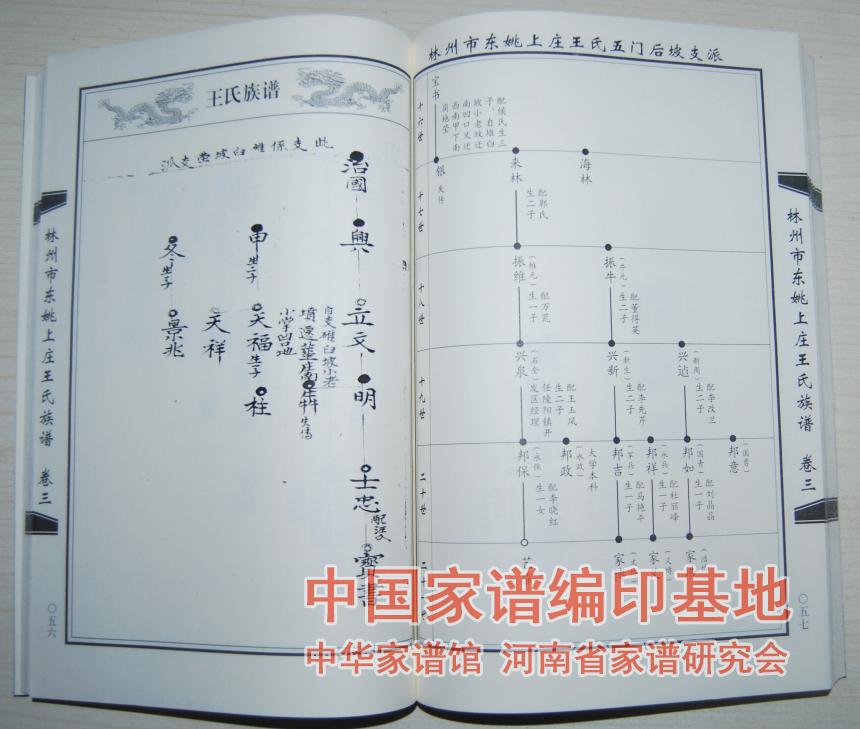 王氏族谱
此支係碓臼坡塋支派
治國
興
立文
明
士忠
寶書
甲
生子
天福
生子
柱
天祥
冬
生子
景兆
自支碓臼坡小老
失傳
林州市东姚上庄王氏族谱 卷三
〇五六
林州市东姚上庄王氏五门后坡支派
十六世
宝书
配侯氏生三
子,自堆臼
坡小老坟迁
南凹口又迁
西南甲下南
岗地茔
十七世
银
失传
来林
配郭氏
生二子
海林
十八世
振维
(维元)
配万芪
生一子
振牛
(牛元)
配董得英
生二子
十九世
兴泉
(石全)
配王玉凤
生二子
任陵阳镇开
发区经理
兴新
(新生)
配李先芹
生二子
兴迠
(新周)
配李改兰
生二子
二十世
邦保
(永保)
配李晓红
生一女
邦政
(永政)
大学本科
邦吉
(军兵)
配马艳平
生一子
邦祥
(永兵)
配杜丽峰
生一子
邦如
(国青)
配刘晶晶
生一子
邦意
(国勇)
二十一世
家
家
家
林州市东姚上庄王氏族谱 卷三
〇五七
中国家谱编印基地
中华家谱馆 河南省家谱研究会